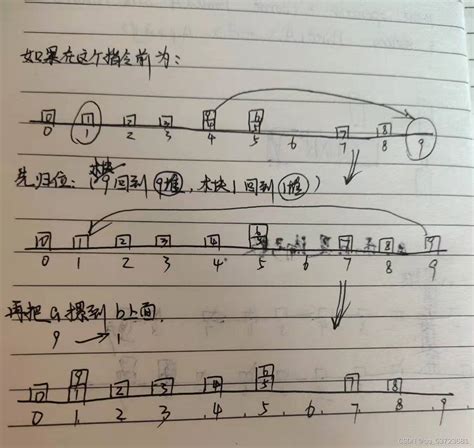 如果在这个指令前为:
0 1 2 3 4 5 6 7 8 9
0 1 2 3 4 5 6 7 8 9
先归位: 木块9回到9堆, 木块1回到1堆)
0 1 2 3 4 6 5 7 8 9
0 1 2 3 4 5 6 7 8 9
再把a摞到b上面.
9 → 1
9 6
0 1 2 3 4 5 7 8
0 1 2 3 4 5 6 7 8 9